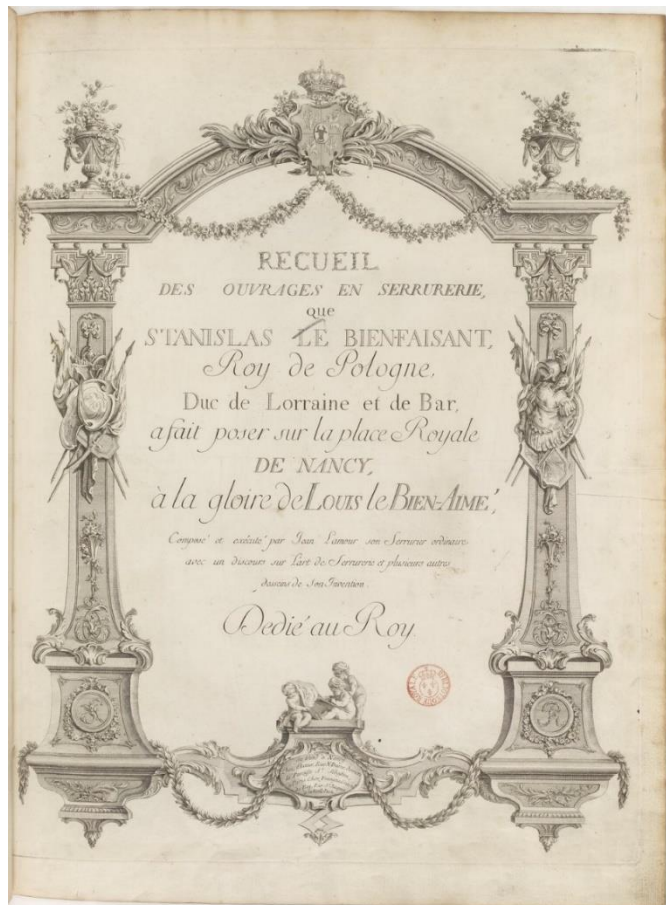 RECUEIL
DES OUVRAGES EN SERRURERIE,
que
STANISLAS LE BIENFAISANT,
Roy de Pologne,
Duc de Lorraine et de Bar,
a fait poser sur la place Royale
DE NANCY,
à la gloire de LOUIS le BIEN-AIMÉ,
Composé et exécuté par Jean Lamour son Serrurier ordinaire
avec un discours sur l'art de Serrurerie et plusieurs autres
desseins de son Invention.
Dedié au Roy.